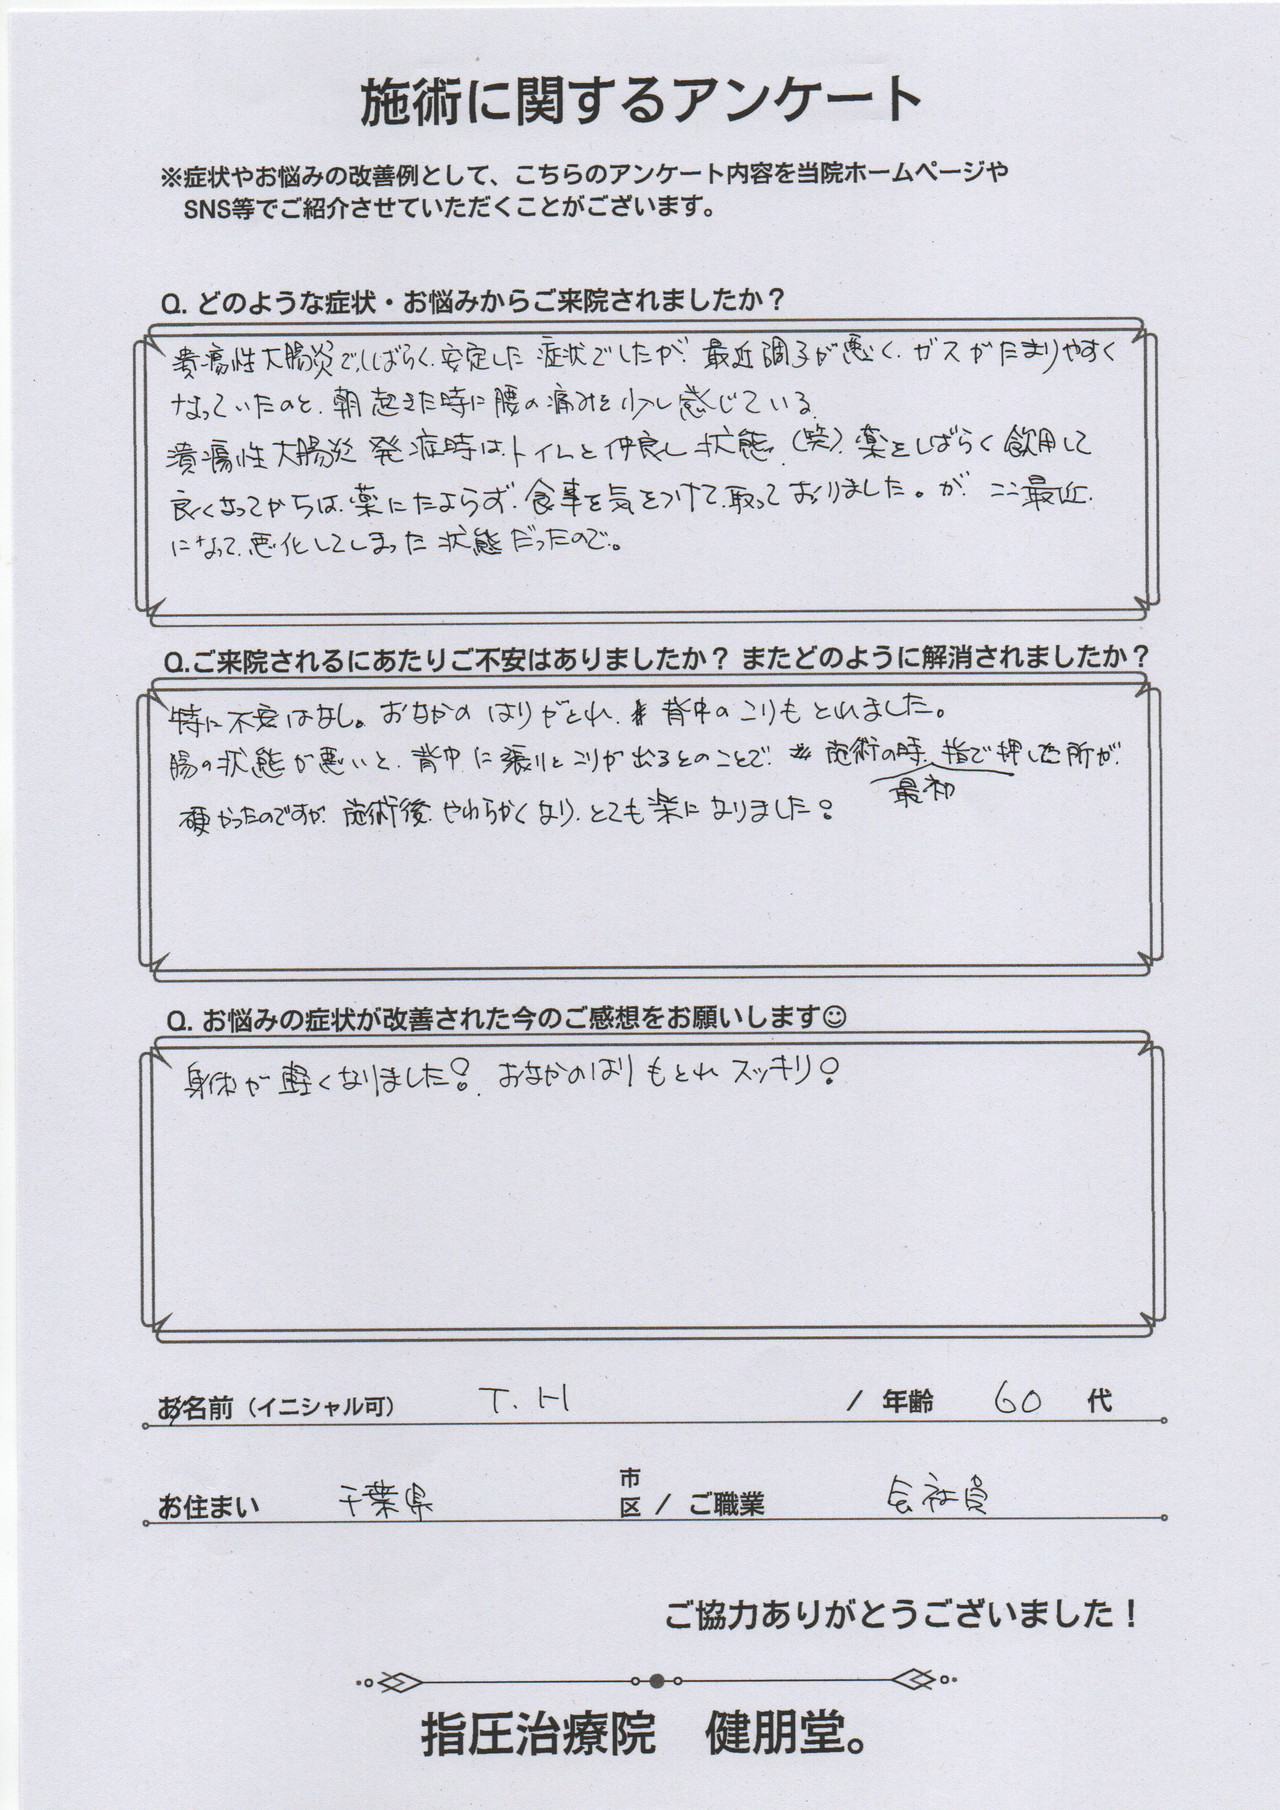 施術に関するアンケート
※症状やお悩みの改善例として、こちらのアンケート内容を当院ホームページや
SNS等でご紹介させていただくことがございます。
Q. どのような症状・お悩みからご来院されましたか？
潰瘍性大腸炎で、しばらく、安定した 症状でしたが、最近調子が悪く、ガスがたまりやすく
なっていたのと、朝起きた時に腰の痛みを少し感じている。
潰瘍性大腸炎 発症時は、トイレと仲良し状態。(笑)、薬をしばらく飲用して
良くなってからは、薬にたよらず、食事を気をつけて、取っておりました。が、ここ最近、
になって、悪化してしまった状態だったので。
Q.ご来院されるにあたりご不安はありましたか？ またどのように解消されましたか？
特に不安はなし。おなかの はりがとれ、背中のこりもとれました。
腸の状態が悪いと、背中に張りとこりが出るとのことで、施術の時、指で押した所が、
最初
硬かったのですが、施術後、やわらかくなり、とても楽になりました！
Q. お悩みの症状が改善された今のご感想をお願いします☺
身体が 軽くなりました！。おなかのはりもとれ スッキリ！
お名前（イニシャル可） T.H / 年齢 60 代
お住まい 千葉県 市区 / ご職業 会社員
ご協力ありがとうございました！
指圧治療院 健朋堂。